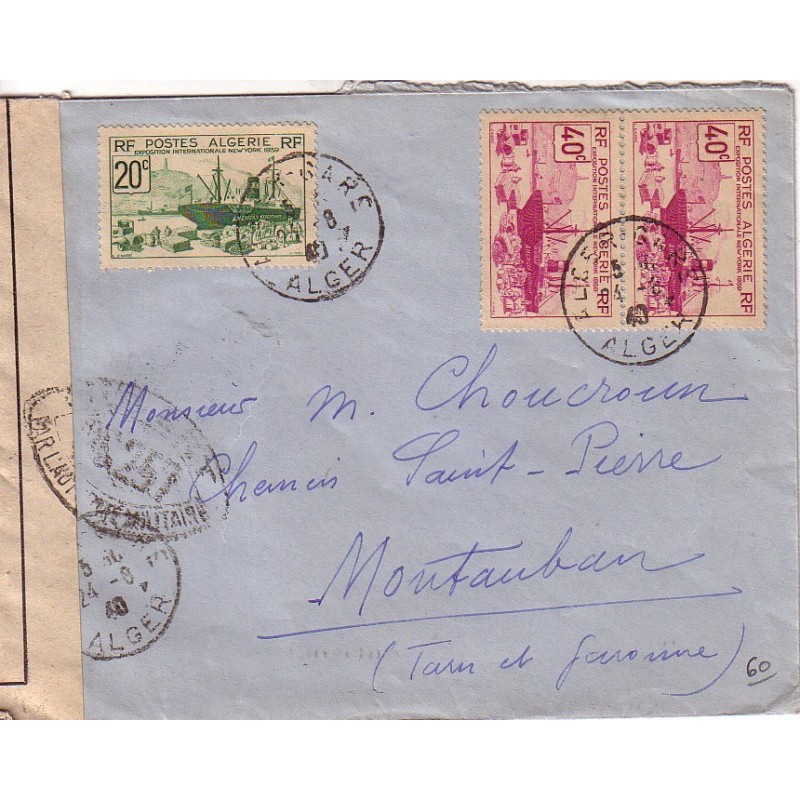 RF POSTES ALGERIE RF
EXPOSITION INTERNATIONALE NEW YORK 1939
20c
RF POSTES ALGERIE RF
EXPOSITION INTERNATIONALE NEW YORK 1939
40c
RF POSTES ALGERIE RF
EXPOSITION INTERNATIONALE NEW YORK 1939
40c
ALGER-GARE
24 -8
40
ALGER
ALGER GARE
24 -8
40
ALGER
Monsieur M. Choucroun
Chemin Saint-Pierre
Montauban
(Tarn et Garonne)
PAR L'AUTORITE MILITAIRE
24 -8
40
ALGER
60